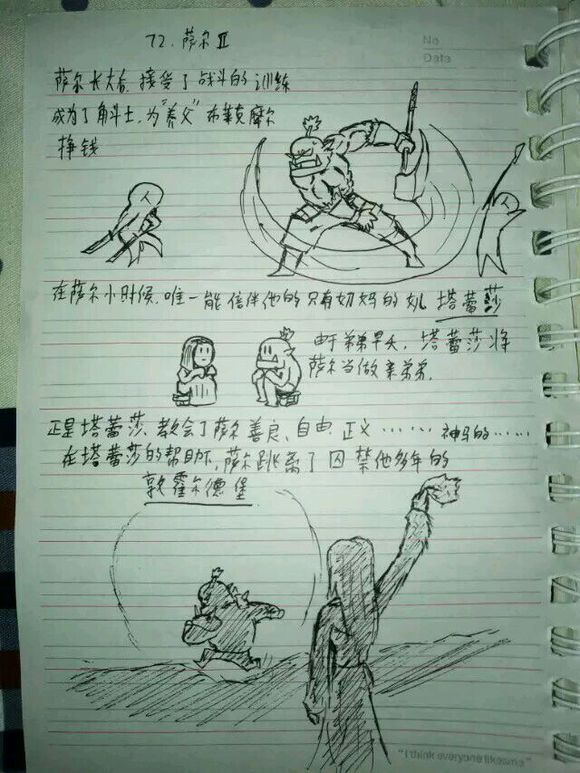 72. 萨尔 II
No
Data
萨尔长大后, 接受了战斗的训练
成为了角斗士, 为“养父”布莱克摩尔
挣钱
在萨尔小时候, 唯一能陪伴他的只有奶妈的女儿 塔蕾莎
由于弟弟早夭, 塔蕾莎将
萨尔当做亲弟弟.
正是塔蕾莎, 教会了萨尔善良、自由、正义……神马的……
在塔蕾莎的帮助下, 萨尔跳离了囚禁他多年的
敦霍尔德堡
"I think everyone likes me"